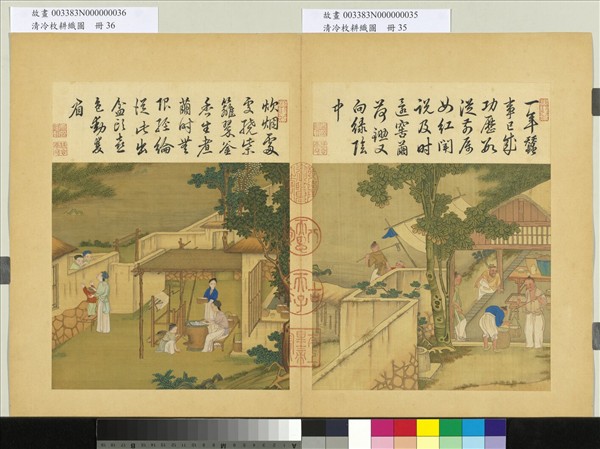 故畫 003383N000000036
清冷枚耕織圖 冊 36
故畫 003383N000000035
清冷枚耕織圖 冊 35
一年蠶
事已成
功歷數
從前屬
女紅聞
說及時
還窖繭
荷鋤又
向綠陰
中
炊烟處
處繞柴
籬翠釜
香生煮
繭時無
限經綸
從此出
盆頭喜
色動雙
眉